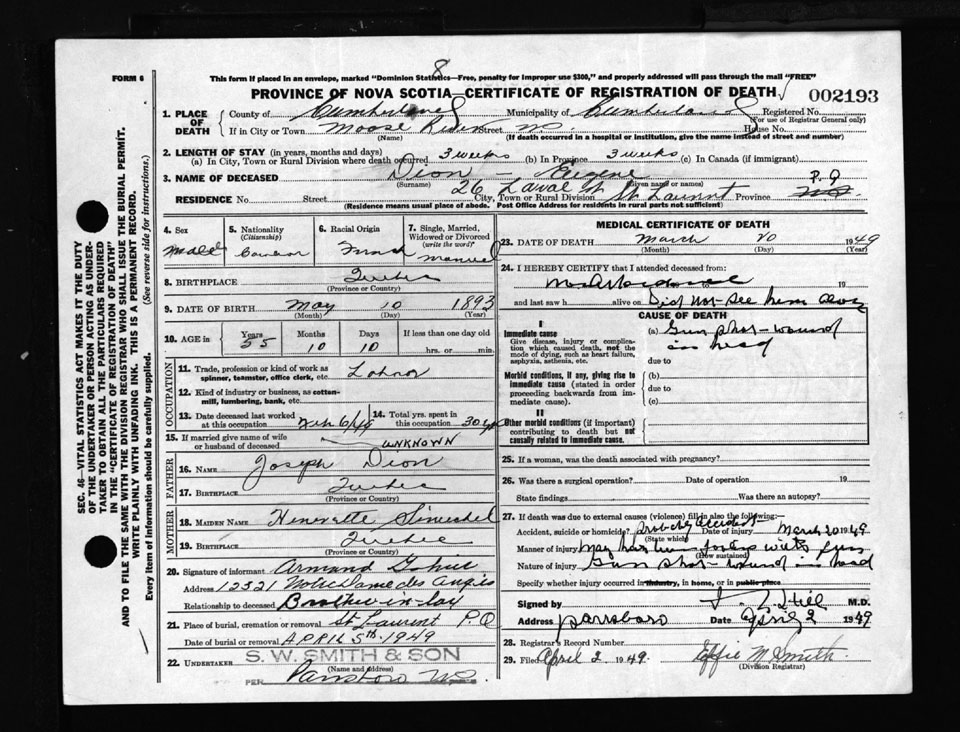 FORM 6
8
This form if placed in an envelope, marked "Dominion Statistics—Free, penalty for improper use $300," and properly addressed will pass through the mail "FREE"
PROVINCE OF NOVA SCOTIA—CERTIFICATE OF REGISTRATION OF DEATH
002193
1. PLACE OF DEATH
County of Cumberland Municipality of Cumberland Registered No.
(For use of Registrar General only)
If in City or Town Moose River Street NS House No.
(Name) (If death occurred in a hospital or institution, give the name instead of street and number)
2. LENGTH OF STAY (in years, months and days)
(a) In City, Town or Rural Division where death occurred 3 weeks (b) In Province 3 weeks (c) In Canada (if immigrant)
3. NAME OF DECEASED Dion — Eugene
(Surname) (Given name or names)
P.Q
RESIDENCE No. Street 26 Laval st City, Town or Rural Division St Laurent Province
(Residence means usual place of abode. Post Office Address for residents in rural parts not sufficient)
4. Sex Male
5. Nationality (Citizenship) Canadian
6. Racial Origin French
7. Single, Married, Widowed or Divorced (write the word) Married
8. BIRTHPLACE Quebec
(Province or Country)
9. DATE OF BIRTH May 10 1893
(Month) (Day) (Year)
10. AGE in Years 55 Months 10 Days 10 If less than one day old hrs. or min.
OCCUPATION
11. Trade, profession or kind of work as spinner, teamster, office clerk, etc. Labour
12. Kind of industry or business, as cotton-mill, lumbering, bank, etc.
13. Date deceased last worked at this occupation Feb 6/49
14. Total yrs. spent in this occupation 30 yrs
15. If married give name of wife or husband of deceased UNKNOWN
FATHER
16. NAME Joseph Dion
17. BIRTHPLACE Quebec
(Province or Country)
MOTHER
18. MAIDEN NAME Henerette
19. BIRTHPLACE Quebec
(Province or Country)
20. Signature of informant Armand
Address 12321 Notre Dame des Anges
Relationship to deceased Brother-in-law
21. Place of burial, cremation or removal St Laurent P.Q
Date of burial or removal APRIL 5th 1949
S. W. SMITH & SON
22. UNDERTAKER
(Name and Address)
PER Parrsboro NS
MEDICAL CERTIFICATE OF DEATH
23. DATE OF DEATH March 20 1949
(Month) (Day) (Year)
24. I HEREBY CERTIFY that I attended deceased from:
19
and last saw h alive on Did not see him alive
CAUSE OF DEATH
I
Immediate cause
Give disease, injury or complication which caused death, not the mode of dying, such as heart failure, asphyxia, asthenia, etc.
(a) Gun shot wound
in head
due to
Morbid conditions, if any, giving rise to immediate cause (stated in order proceeding backwards from immediate cause).
(b)
due to
(c)
II
Other morbid conditions (if important) contributing to death but not causally related to immediate cause.
25. If a woman, was the death associated with pregnancy?
26. Was there a surgical operation? Date of operation 19
State findings Was there an autopsy?
27. If death was due to external causes (violence) fill in also the following:—
Accident, suicide or homicide? Probably accident Date of injury March 20 1949
(State which)
Manner of injury May have been fooling with gun
(How sustained)
Nature of injury Gun shot wound in head
Specify whether injury occurred in industry, in home, or in public place
Signed by Hill M.D.
Address Parrsboro Date April 2 1949
28. Registrar's Record Number
29. Filed April 2 1949 Effie M Smith
(Division Registrar)
SEC. 46—VITAL STATISTICS ACT MAKES IT THE DUTY
OF THE UNDERTAKER OR PERSON ACTING AS UNDERTAKER TO OBTAIN ALL THE PARTICULARS REQUIRED
IN THE "CERTIFICATE OF REGISTRATION OF DEATH"
AND TO FILE THE SAME WITH THE DIVISION REGISTRAR WHO SHALL ISSUE THE BURIAL PERMIT.
WRITE PLAINLY WITH UNFADING INK. THIS IS A PERMANENT RECORD.
Every item of information should be carefully supplied. (See reverse side for instructions.)